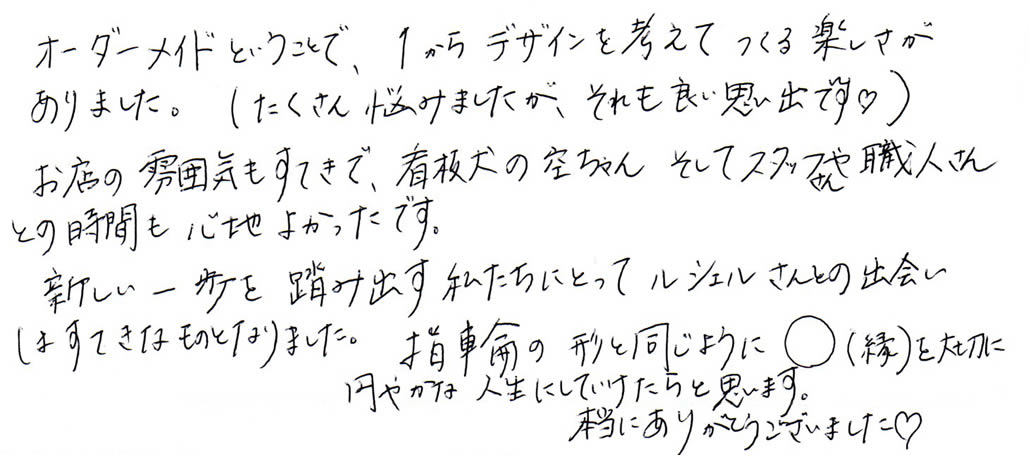 オーダーメイドということで、1からデザインを考えてつくる楽しさが
ありました。(たくさん悩みましたが、それも良い思い出です♡)
お店の雰囲気もすてきで、看板犬の空ちゃん そしてスタッフさんや職人さん
との時間も心地よかったです。
新しい一歩を踏み出す私たちにとってルシェルさんとの出会い
はすてきなものとなりました。指輪の形と同じように○(縁)を大切に
円やかな人生にしていけたらと思います。
本当にありがとうございました♡